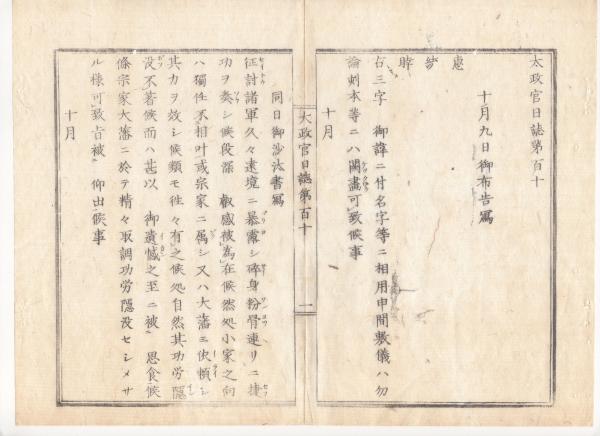 太政官日誌第百十
十月九日御布告寫
惠 統 睦
右三字 御諱ニ付名字等ニ相用申間敷儀ハ勿
論刻本等ニハ闕畫可致候事
十月
太政官日誌第百十
一
同日御沙汰書寫
征討諸軍久々遠境ニ暴露シ碎身粉骨連リニ捷
功ヲ奏シ候段深 叡感被爲在候然処小家之向
ハ獨任不相叶或宗家ニ属シ又ハ大藩ニ依頼シ
其力ヲ效シ候類モ往々有之候処自然其功労隱
没不著候而ハ甚以 御遺憾之至ニ被 思食候
條宗家大藩ニ於テ精々取調功労隱没セシメサ
ル様可致旨被 仰出候事
十月